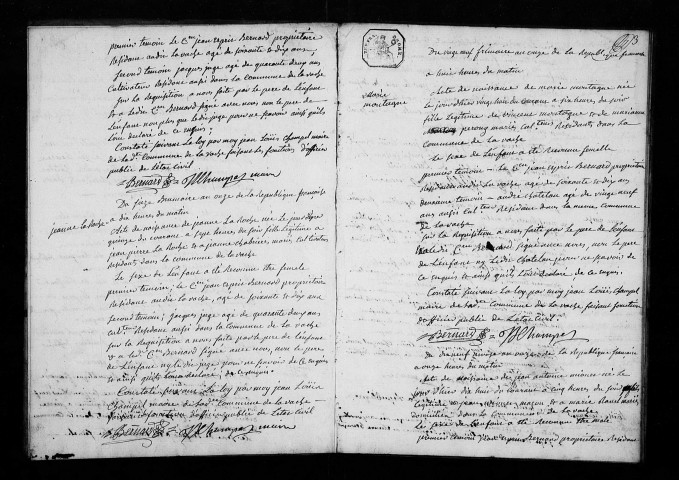 premier temoin le C.en jean esprit Bernard propriétaire
Residant audit la vache agé de soixante et dix ans,
second temoin jacques juge agé de quarante deux ans
Cultivateur Residant aussi dans la Commune de la vache
sur la Requisition a nous fait par le pere de l'enfant
et a ledit C.en Bernard signé avec nous, non le pere de
l'enfant non plus que le dit juge pour ne savoir ainsi qu'ils
l'ont declaré de ce enquis;
Constaté suivant la loy par moy jean Louis Champel maire
de lad. Commune de la vache faisant les fonctions d'officier
public de l'etat civil
Bernard Champel maire
Du seize Brumaire an onze de la Republique françoise
à dix heures du matin
jeanne la Roche
Acte de naissance de jeanne la Roche née le jour d'hyer
quinze du courant a seize heures du soir fille legitime a
jean pierre la Roche et a jeanne chabrier, maries, cult.
Residants dans la commune de la vache
Le sexe de l'enfant a été Reconnu femelle
premier temoin, le C.en jean esprit Bernard propriétaire
Residant audit la vache, agé de soixante et dix ans
second temoin; jacques juge agé de quarante deux ans
cult. Residant aussi dans la commune de la vache
sur la Requisition a nous faite par le pere de l'enfant
et a led. C.en Bernard signé avec nous, non le pere de
l'enfant ny le dit juge pour ne savoir de ce enquis
et ainsi qu'ils l'ont declaré,
Constaté suivant la loy par moy jean Louis
Champel maire de lad. Commune de la vache
officier public de l'etat civil
Bernard Champel maire
173
Du vingt neuf frimaire an onze de la Republique francoise
a huit heures du matin
marie
mortagne
Acte de naissance de marie mortagne née
le jour d'hier vingt huit du courant a six heures du soir
fille legitime de vincent mortagne et de marianne
mariés cult. Residants dans la
Commune de la vache
le sexe de l'enfant a été Reconnu femelle
premier temoin = le C.en jean esprit Bernard propriétaire
Residant audit la vache, agé de soixante et dix ans
deuxieme temoin = andré chatelan agé de vingt neuf
ans aussi cult. Residant dans la meme commune
de la vache
sur la Requisition a nous fait par le pere de l'enfant
le dit C.en Bernard signé avec nous, non le pere
de l'enfant ny le dit chatelan pour ne savoir de
ce enquis et ainsi qu'ils l'ont declaré de ce enquis.
Constaté suivant la loy par moy jean Louis Champel
maire de lad. Commune de la vache faisant fonction
d'officier public de l'etat civil
Bernard Champel
Du dix neuf nivose an onze de la Republique francoise
a onze heures du matin
Acte de naissance de jean antoine né le
jour d'hier dix huit du courant a cinq heures du soir fils
legitime de jean maçon et a marie mariés
domicilies dans la Commune de la vache
Le sexe de l'enfant a été Reconnu être male
premier temoin jean esprit Bernard propriétaire Residant